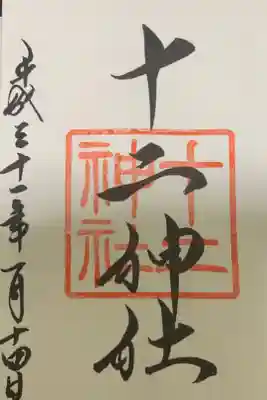 十二神社
平成三十一年一月十四日
十二
神社